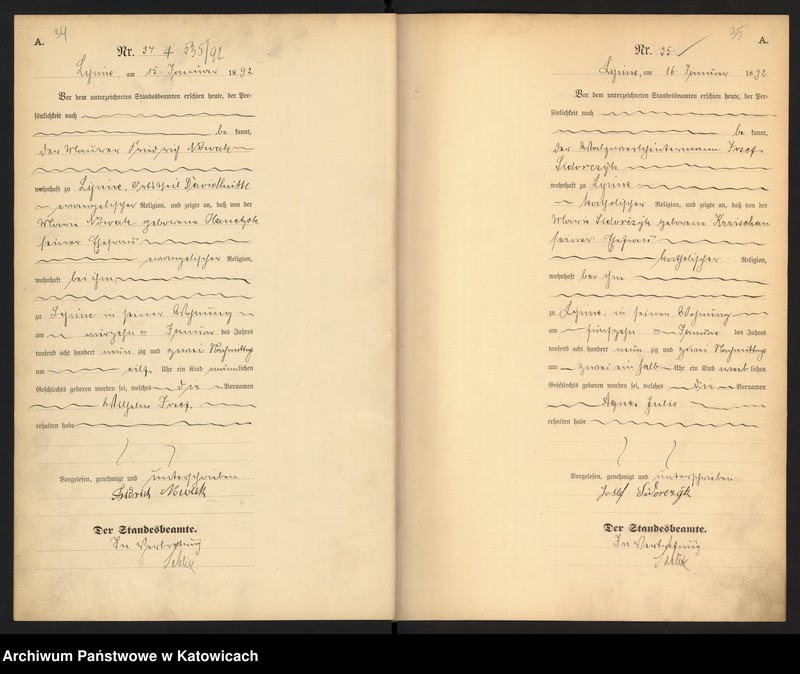 34
A.
Nr. 34 + 535/92
Lipine, am 15. Januar 1892
Vor dem unterzeichneten Standesbeamten erschien heute, der Per-
sönlichkeit nach
be kannt,
der Maurer Friedrich Nowak
wohnhaft zu Lipine, Ortstheil Davidhütte
evangelischer Religion, und zeigte an, daß von der
Marie Nowak geborene
seiner Ehefrau
evangelischer Religion,
wohnhaft bei ihm
zu Lipine in seiner Wohnung
am vierzehn ten Januar des Jahres
tausend acht hundert neun zig und zwei Nachmittag
um elf Uhr ein Kind männlichen
Geschlechts geboren worden sei, welches die Vornamen
Wilhelm Josef
erhalten habe
Vorgelesen, genehmigt und unterschrieben
Fridrich Nowak
Der Standesbeamte.
In Vertretung
35
A.
Nr. 35.
Lipine, am 16. Januar 1892
Vor dem unterzeichneten Standesbeamten erschien heute, der Per-
sönlichkeit nach
be kannt,
der Josef
Sidorczyk
wohnhaft zu Lipine
katholischer Religion, und zeigte an, daß von der
Marie Sidorczyk geborene
seiner Ehefrau
katholischer Religion,
wohnhaft bei ihm
zu Lipine in seiner Wohnung
am fünfzehn ten Januar des Jahres
tausend acht hundert neun zig und zwei Nachmittag
um zwei ein halb Uhr ein Kind weib lichen
Geschlechts geboren worden sei, welches die Vornamen
Agnes Julie
erhalten habe
Vorgelesen, genehmigt und unterschrieben
Josef Sidorczyk
Der Standesbeamte.
In Vertretung
Archiwum Państwowe w Katowicach